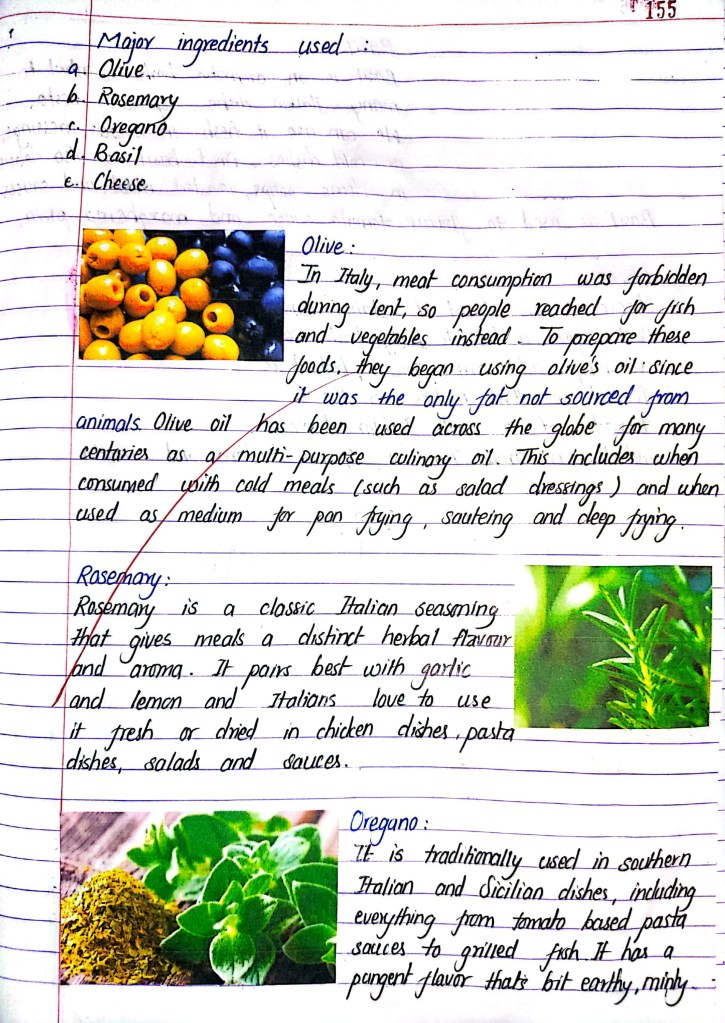 155
Major ingredients used :
a. Olive
b. Rosemary
c. Oregano
d. Basil
e. Cheese
Olive :
In Italy, meat consumption was forbidden
during lent, so people reached for fish
and vegetables instead. To prepare these
foods, they began using olive's oil since
it was the only fat not sourced from
animals. Olive oil has been used across the globe for many
centuries as a multi-purpose culinary oil. This includes when
consumed with cold meals (such as salad dressings) and when
used as medium for pan frying, sauteing and deep frying.
Rosemary :
Rosemary is a classic Italian seasoning
that gives meals a distinct herbal flavour
and aroma. It pairs best with garlic
and lemon and Italians love to use
it fresh or dried in chicken dishes, pasta
dishes, salads and sauces.
Oregano :
It is traditionally used in southern
Italian and Sicilian dishes, including
everything from tomato based pasta
sauces to grilled fish. It has a
pungent flavor thats bit earthy, minty.